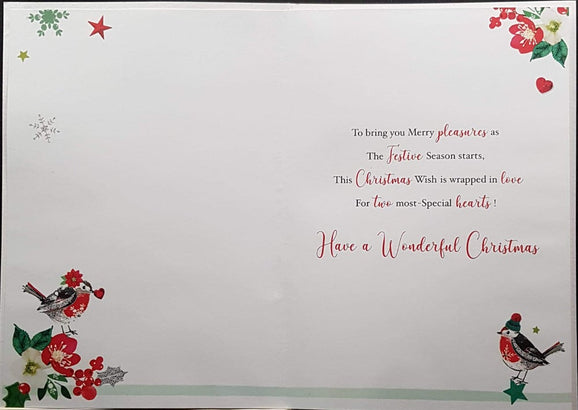 To bring you Merry pleasures as
The Festive Season starts,
This Christmas Wish is wrapped in love
For two most-Special hearts !
Have a Wonderful Christmas